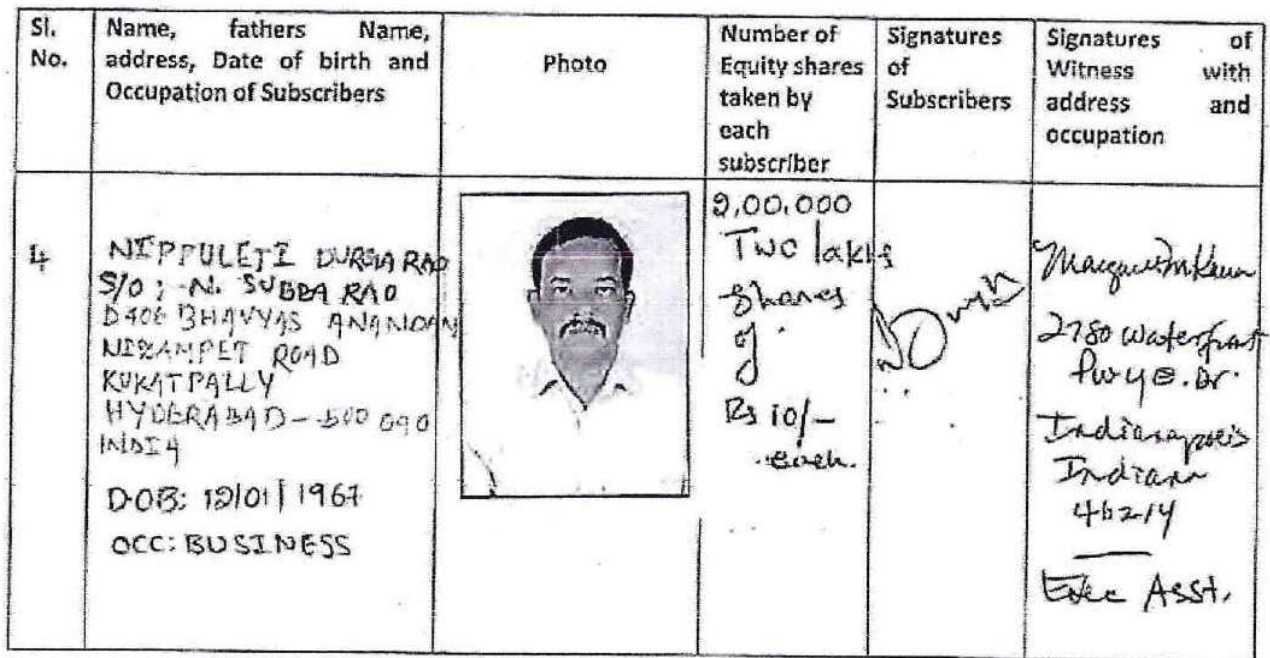 Sl. No.
Name, fathers Name, address, Date of birth and Occupation of Subscribers
Photo
Number of Equity shares taken by each subscriber
Signatures of Subscribers
Signatures of Witness with address and occupation
4
NIPPULETI DURGA RAO
S/O: N. SUBBA RAO
D406 BHAVYAS ANANDAM
NIZAMPET ROAD
KUKATPALLY
HYDERABAD - 500 090
INDIA
DOB: 12/01/1967
OCC: BUSINESS
2,00,000
Two lakhs
Shares
of
Rs 10/-
each.
2780 Waterfront
Pwy E. Dr.
Indianapolis
Indiana
46214
Exec Asst.